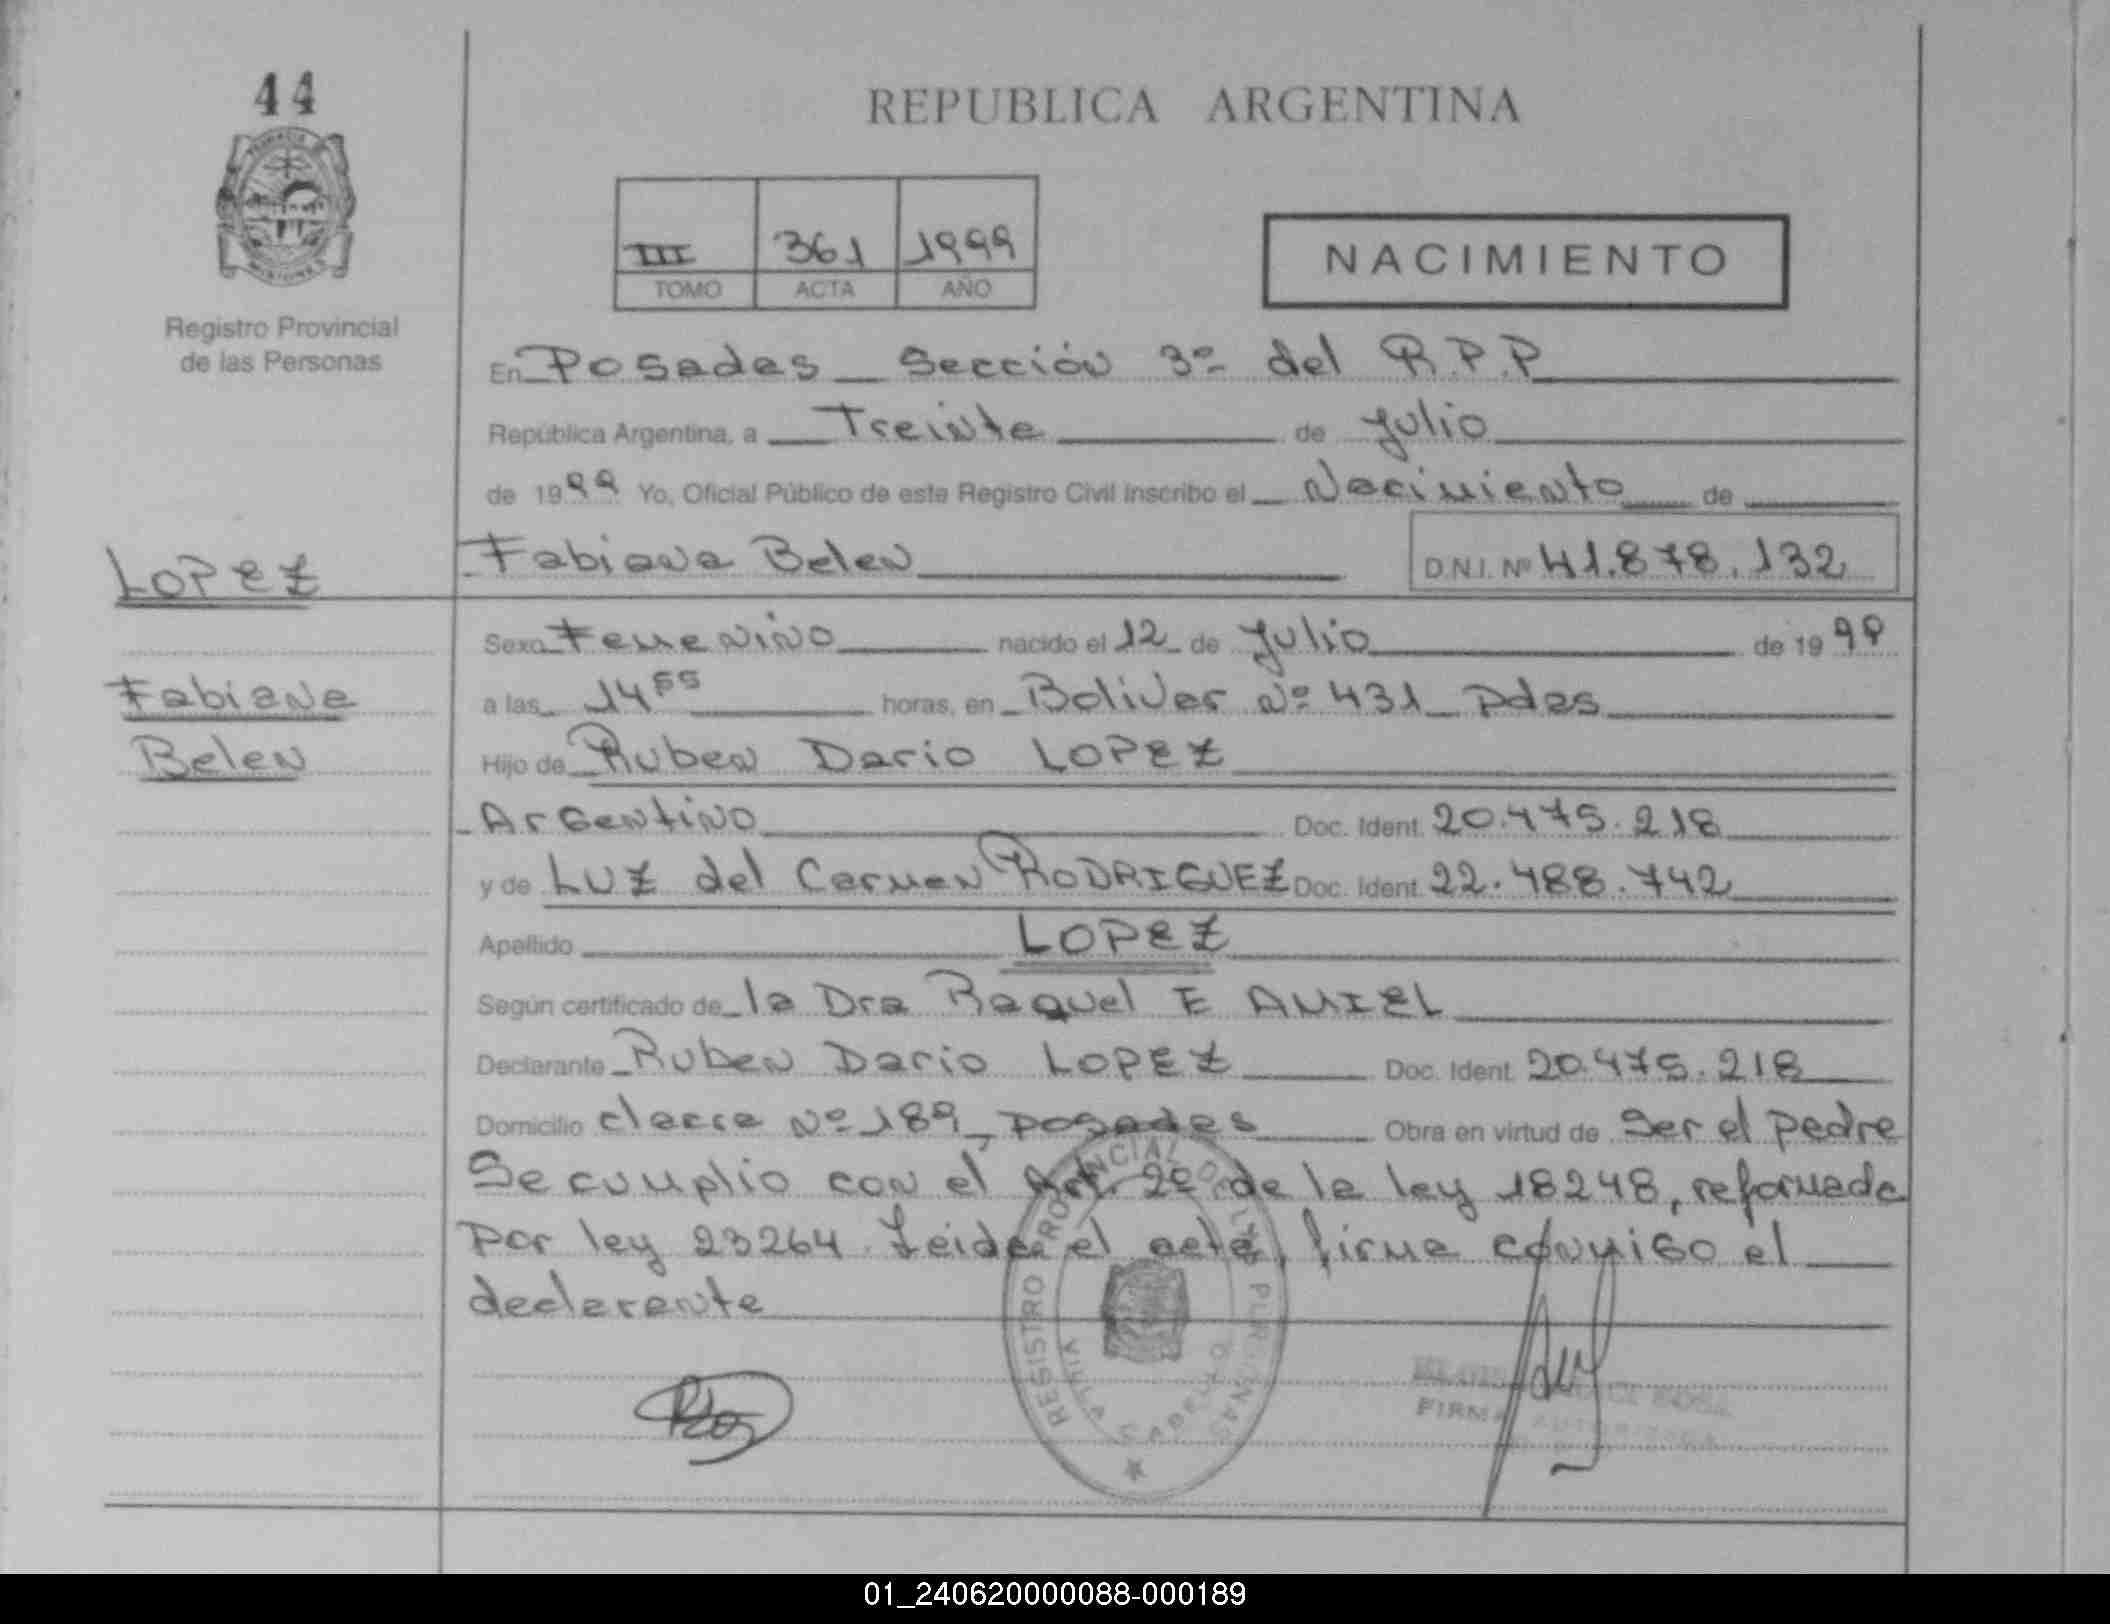 44
REPUBLICA ARGENTINA
III 361 1999
TOMO ACTA AÑO
NACIMIENTO
PROVINCIA
MISIONES
Registro Provincial
de las Personas
En Posadas _ Sección 3º del R.P.P
República Argentina, a Treinta de Julio
de 1999 Yo, Oficial Público de este Registro Civil inscribo el Nacimiento de
LOPEZ
Fabiana Belen D.N.I. Nº 41.878.132
Sexo Femenino nacido el 12 de Julio de 1999
Fabiana
a las 14 55 horas, en Bolivar Nº 431 _ Pdas
Belen
Hijo de Ruben Dario LOPEZ
Argentino Doc. Ident. 20.475.218
y de LUZ del Carmen RODRIGUEZ Doc. Ident. 22.488.742
Apellido LOPEZ
Según certificado de la Dra Raquel E AMIEL
Declarante Ruben Dario LOPEZ Doc. Ident. 20.475.218
Domicilio clacra Nº 189, posadas Obra en virtud de ser el padre
Se cumplio con el Art. 2º de la ley 18248, reformada
por ley 23264. Leida el acta, firma conmigo el
declarante
REGISTRO PROVINCIAL
FIRMA AUTORIZADA
01_240620000088-000189